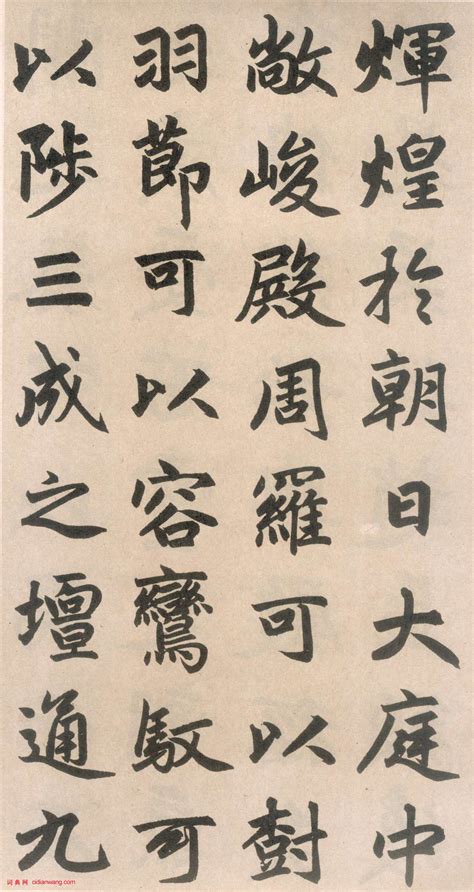 輝煌於朝日大庭中
敞峻殿周羅可以樹
羽莭可以容鸞馭可
以陟三成之壇通九
词典网 cidianwang.com